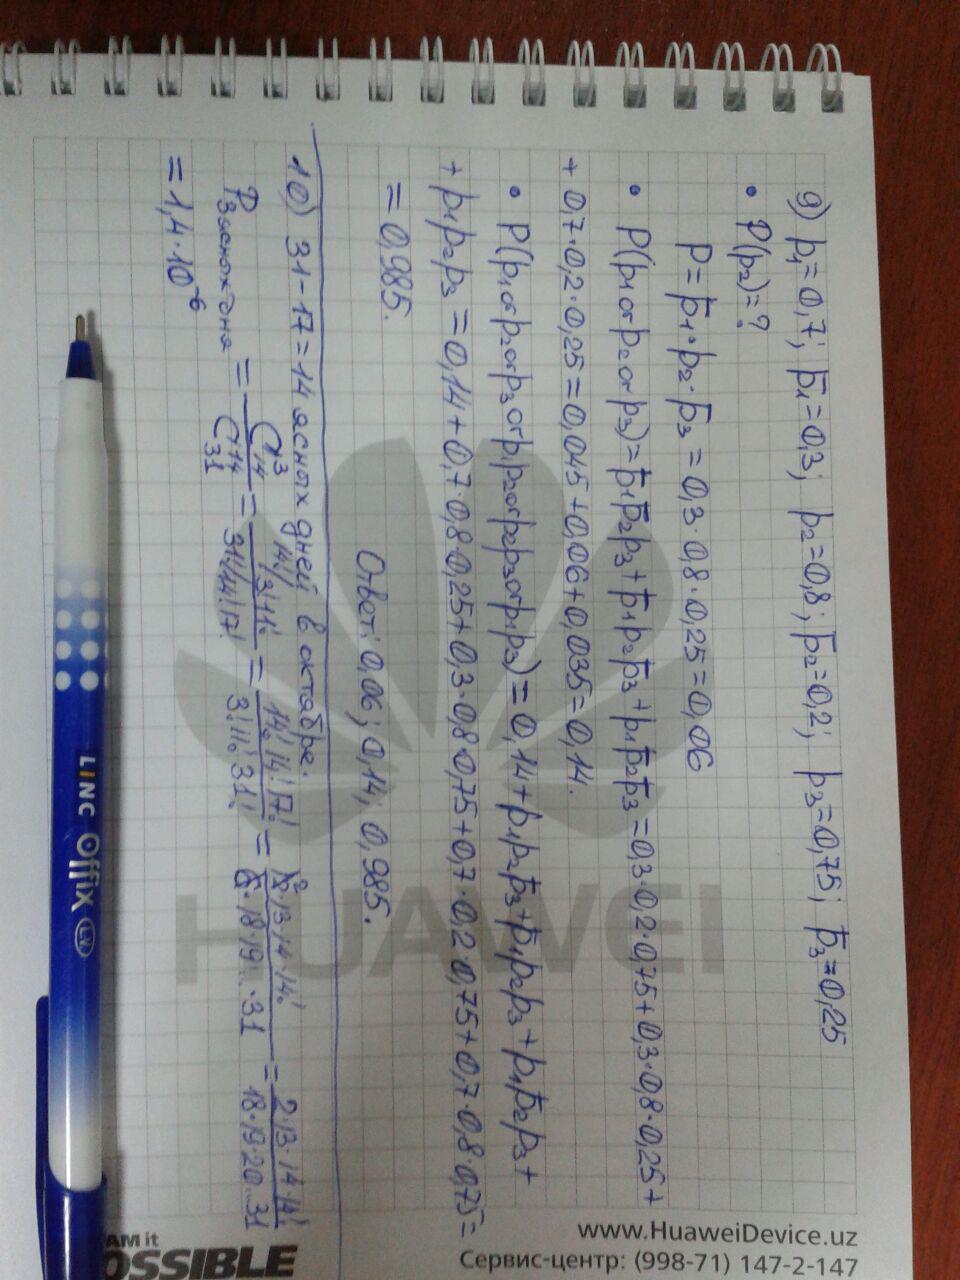 9) p₁=0,7; p̅₁=0,3; p₂=0,8; p̅₂=0,2; p₃=0,75; p̅₃=0,25
• P(p₂)=?
P=p̅₁·p₂·p̅₃=0,3·0,8·0,25=0,06
• P(p₁ or p₂ or p₃)=p̅₁p̅₂p₃+p̅₁p₂p̅₃+p₁p̅₂p̅₃=0,3·0,2·0,75+0,3·0,8·0,25+
+0,7·0,2·0,25=0,045+0,06+0,035=0,14.
• P(p₁ or p₂ or p₃ or p₁p₂ or p₂p₃ or p₁p₃)=0,14+p₁p₂p̅₃+p̅₁p₂p₃+p₁p̅₂p₃+
+p₁p₂p₃=0,14+0,7·0,8·0,25+0,3·0,8·0,75+0,7·0,2·0,75+0,7·0,8·0,75=
=0,985.
Ответ: 0,06; 0,14; 0,985.
10) 31-17=14 ясных дней в октябре.
P₃ = C₁₄³/C₃₁¹⁴ = 14!/3!11! / 31!/14!17! = 14!14!17!/3!11!31! = 12·13·14·14!/6·18·19..·31 = 2·13·14·14!/18·19·20..31
=1,4·10⁻⁶
HUAWEI
LINC Offix LX
I AM it
POSSIBLE
www.HuaweiDevice.uz
Сервис-центр: (998-71) 147-2-147